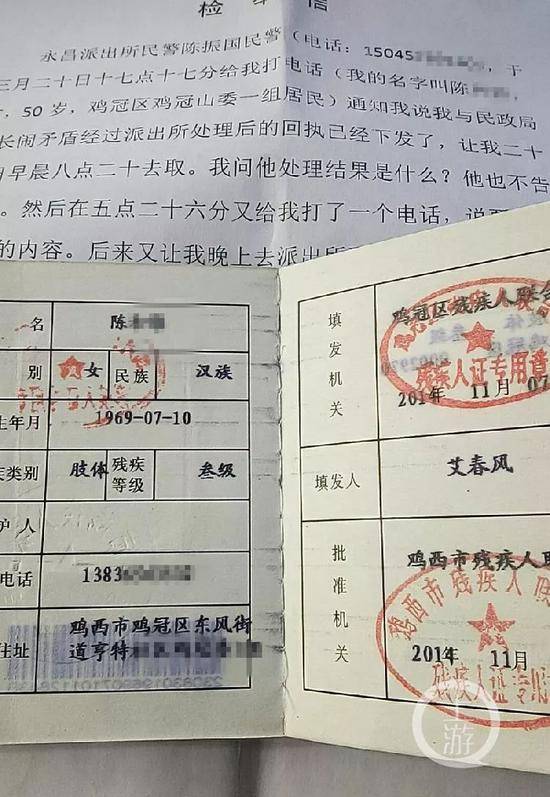 检举信
永昌派出所民警陈振国民警（电话：15045
三月二十日十七点十七分给我打电话（我的名字叫陈
，50岁，鸡冠区鸡冠山委一组居民）通知我说我与民政局
长闹矛盾经过派出所处理后的回执已经下发了，让我二十
日早晨八点二十去取。我问他处理结果是什么？他也不告
。然后在五点二十六分又给我打了一个电话，说
的内容。后来又让我晚上去派出所
名 陈
别 女 民族 汉族
生年月 1969-07-10
疾类别 肢体 残疾等级 叁级
护人
电话 1383
住址 鸡西市鸡冠区东风街
道亨特
填发机关 鸡冠区残疾人联合
残疾人证专用章
2014年 11月 07
填发人 艾春风
批准机关 鸡西市残疾人联
鸡西市残疾人联
2014年 11月
残疾人证专用
上游